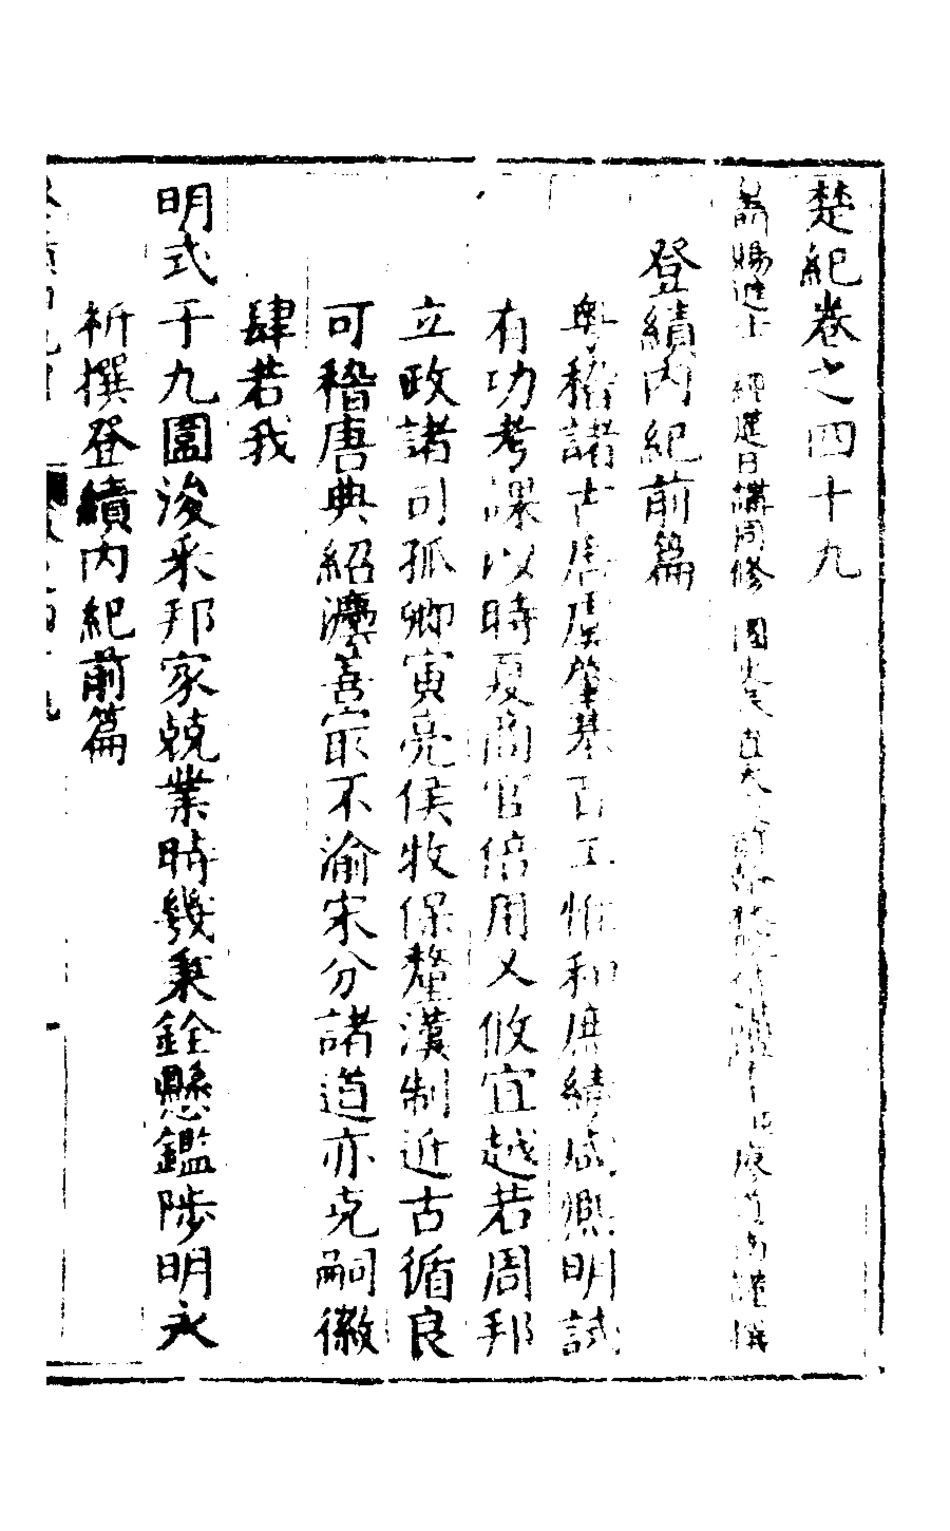 楚紀卷之四十九
賜進士 經筵日講同修 國史 廖道南謹撰
登績內紀前篇
粵稽諸古唐虞肇基百工惟和庶績咸熙明試
有功考課以時夏商官倍用乂攸宜越若周邦
立政諸司孤卿寅亮侯牧保釐漢制近古循良
可稽唐典紹灋善㝡不渝宋分諸道亦克嗣徽
肆若我
明式于九圍浚采邦家兢業時幾秉銓懸鑑陟明永
祈撰登績內紀前篇